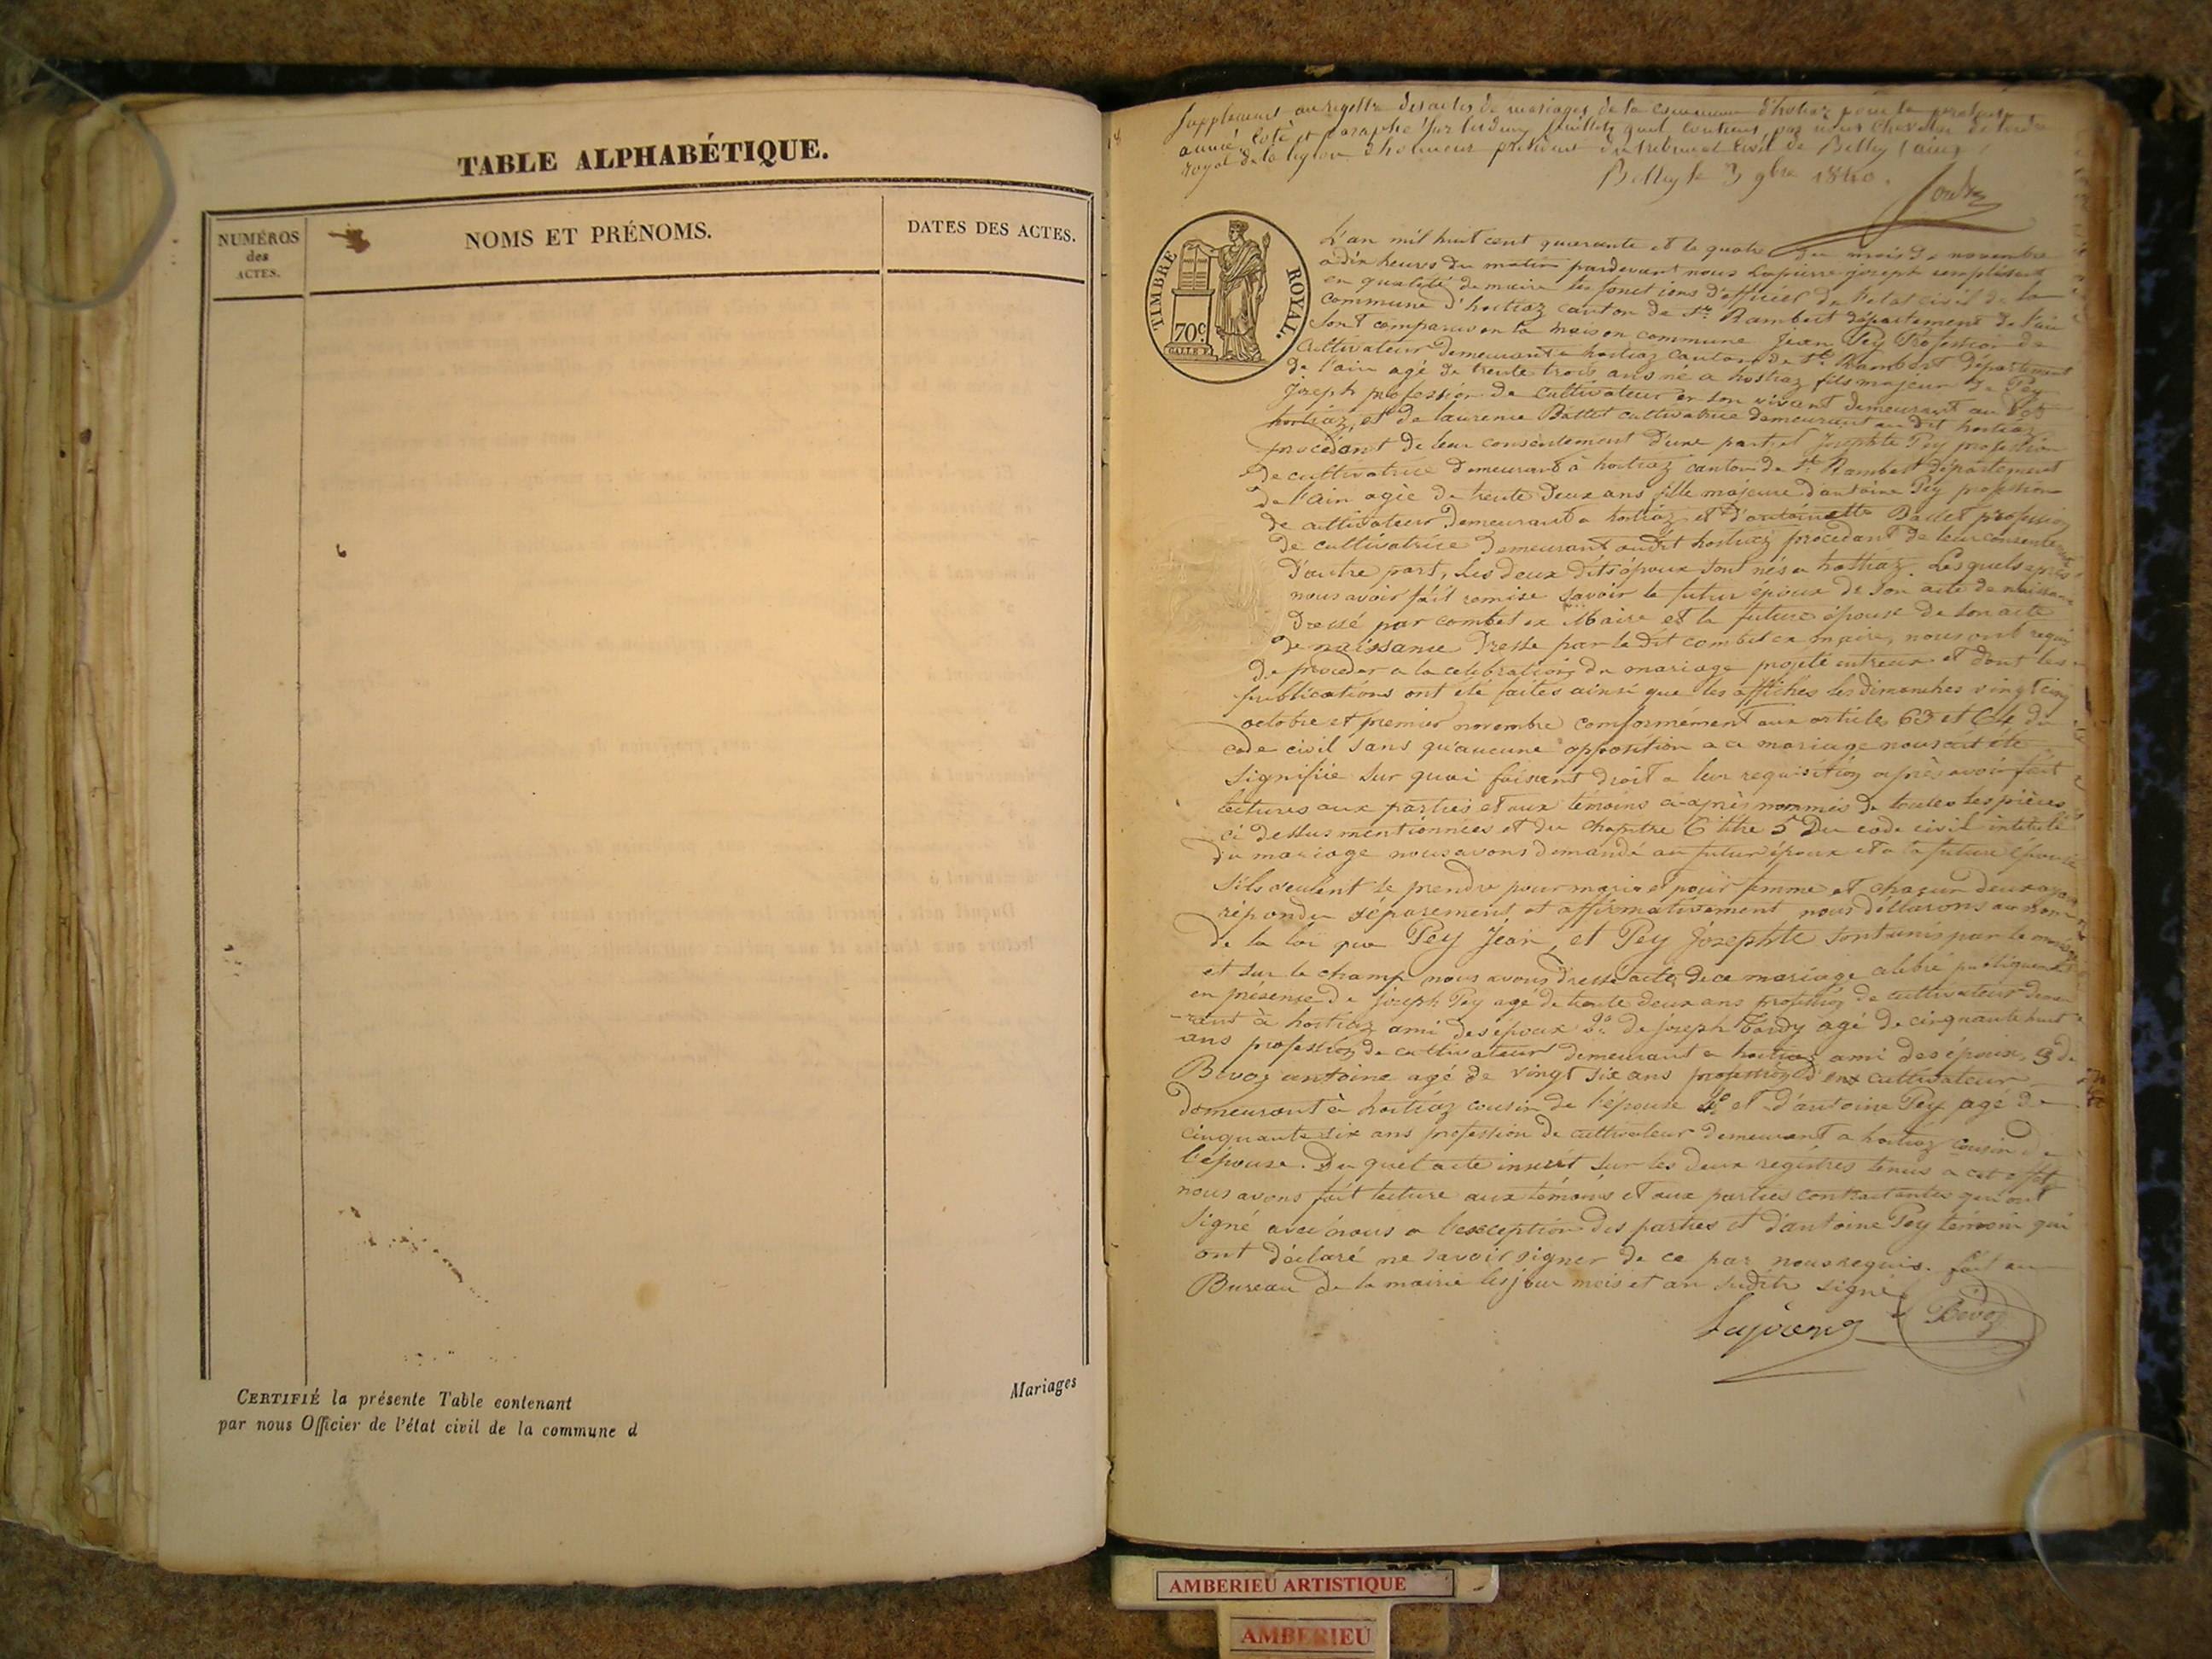 TABLE ALPHABÉTIQUE.
NUMÉROS
des
ACTES.
NOMS ET PRÉNOMS.
DATES DES ACTES.
CERTIFIÉ la présente Table contenant
Mariages
par nous Officier de l'état civil de la commune d
Supplement au registre des actes de mariages de la commune d'hostiaz pour la presente
année, coté et paraphé sur les deux feuillets qu'il contient, par nous Chevalier de l'ordre
royal de la legion d'honneur president du tribunal Civil de Belley (ain)
Belley le 3 9bre 1840.
TIMBRE ROYAL.
70c
L'an mil huit cent quarante et le quatre du mois de novembre
a dix heures du matin pardevant nous Lapierre joseph remplissant
en qualité de maire les fonctions d'officier de l'etat civil de la
commune d'hostiaz canton de St Rambert département de l'ain
sont comparus en la maison commune Jean Pey Profession de
Cultivateur demeurant a hostiaz canton de St Rambert Département
de l'ain agé de trente trois ans né a hostiaz fils majeur de Pey
Joseph profession de cultivateur en son vivant demeurant au dit
hostiaz, et de laurence Ballet cultivatrice demeurant au dit hostiaz
procédant de leur consentement d'une part et Josephte Pey profession
de cultivatrice demeurant à hostiaz canton de St Rambert département
de l'ain agée de trente deux ans fille majeure d'antoine Pey profession
de cultivateur demeurant a hostiaz et d'antoinette profession
de cultivatrice demeurant audit hostiaz procedant de leur consentement
d'autre part, les deux dits époux sont nés a hostiaz. Lesquels après
nous avoir fait remise savoir le futur époux de son acte de naissance
dressé par combet ex Maire et la future épouse de son acte
de naissance dressé par le dit combet ex maire, nous ont requis
de proceder a la celebration du mariage projeté entreux et dont les
publications ont été faites ainsi que les affiches les dimanches vingt cinq
octobre et premier novembre conformément aux articles 63 et 64 du
code civil sans qu'aucune opposition a ce mariage nous ait été
signifiée sur quoi faisant droit a leur requisition après avoir fait
lectures aux parties et aux témoins ci-après nommés de toutes les pièces
ci dessus mentionnées et du chapitre 6 titre 5 du code civil intitulé
du mariage nous avons demandé au futur époux et a la future épouse
s'ils veulent se prendre pour mari et pour femme et chacun deux ayant
répondu séparement et affirmativement nous déclarons au nom
de la loi que Pey Jean, et Pey Josephte sont unis par le mariage
et sur le champ nous avons dressé acte de ce mariage celebré publiquement
en présence de joseph Pey agé de trente deux ans profession de cultivateur demeu
-rant à hostiaz ami des époux 2° de joseph Tardy agé de cinquante huit
ans profession de cultivateur demeurant a hostiaz ami des époux, 3 de
Bevoz antoine agé de vingt six ans profession cultivateur
demeurant à hostiaz cousin de l'épouse 4° et d'antoine Pey agé de
cinquante six ans profession de cultivateur demeurant a hostiaz cousin de
l'épouse. Du quel acte inscrit sur les deux registres tenus a cet effet
nous avons fait lecture aux témoins et aux parties contractantes qui ont
signé avec nous a l'exception des parties et d'antoine Pey temoin qui
ont déclaré ne savoir signer de ce par nous requis. fait au
Bureau de la mairie les jour mois et an susdits signé
Bevoz
AMBERIEU ARTISTIQUE
AMBERIEU